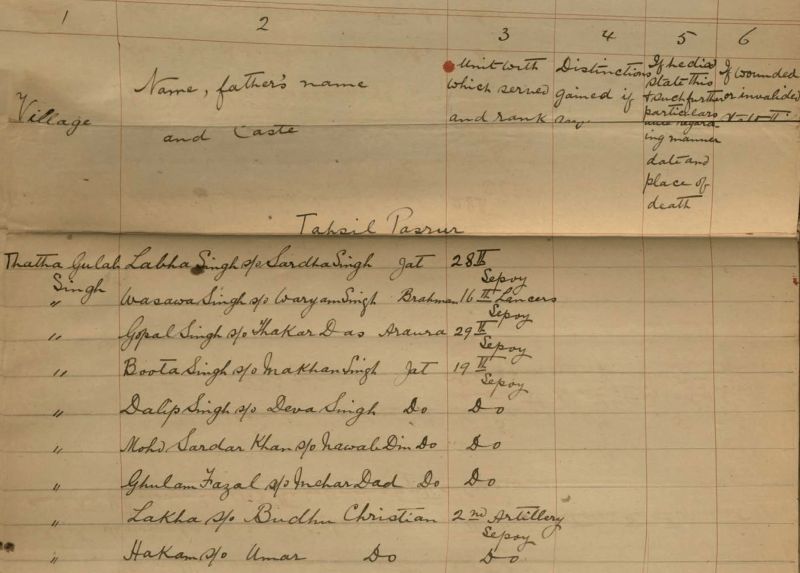 1 2 3 4 5 6
Village
Name, father's name
and Caste
Unit with
which served
and rank
Distinctions
gained if
any.
If he died
state this
& such further
particulars
regard-
ing manner
date and
place of
death
If wounded
or invalided
Tahsil Pasrur
Thatha Gulab Labha Singh s/o Sardha Singh Jat 28th
Singh Sepoy
" Wasawa Singh s/o Waryam Singh Brahman 16th Lancers
Sepoy
" Gopal Singh s/o Thakar Das Araura 29th
Sepoy
" Boota Singh s/o Makhan Singh Jat 19th
Sepoy
" Dalip Singh s/o Deva Singh Do Do
" Mohd Sardar Khan s/o Nawab Din Do Do
" Ghulam Fazal s/o Mehar Dad Do Do
" Lakha s/o Budhu Christian 2nd Artillery
Sepoy
" Hakam s/o Umar Do Do